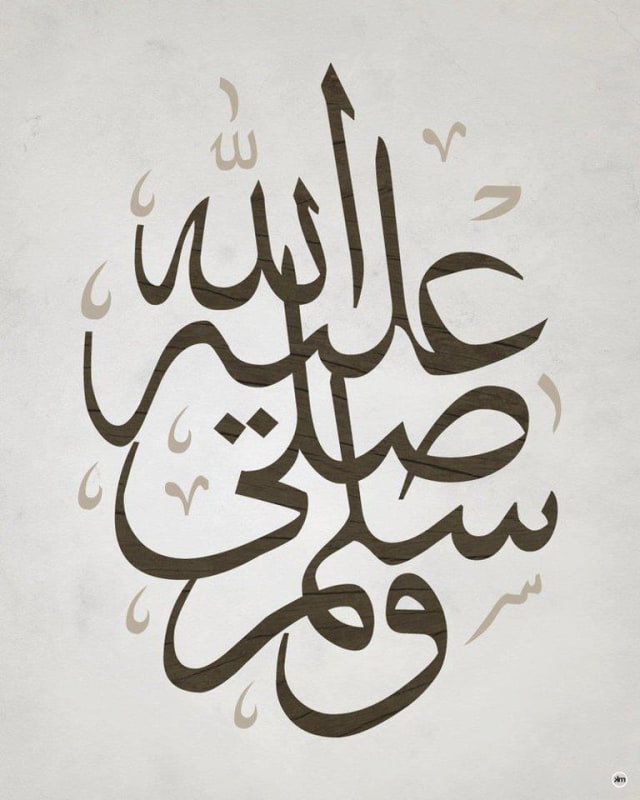 صلى الله عليه وسلم
km